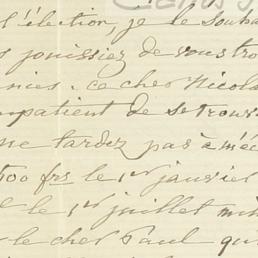 l'élection, je le souhai
jouissiez de vous trou
ce cher Nicola
mpatient de se trouv
ne tardez pas à m'éc
500 frs le 1er janvier
le 1er juillet mi
le cher Paul qu